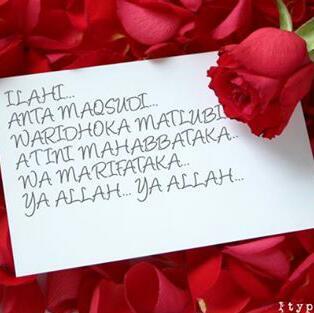 ILAHI...
ANTA MAQSUDI...
WARIDHOKA MATLUBI
ATINI MAHABBATAKA...
WA MARIFATAKA...
YA ALLAH... YA ALLAH...
typ